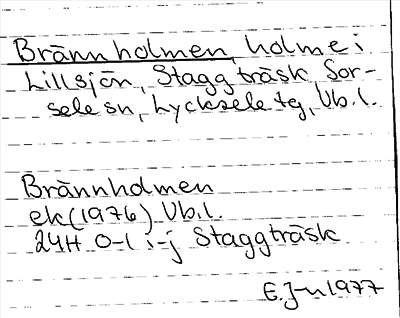 Brännholmen, holme i
Lillsjön, Staggträsk, Sor-
sele sn, Lycksele tg, Vb.l.
Brännholmen
ek (1976) Vb.l.
24H 0-1 i-j Staggträsk
E.J-n 1977